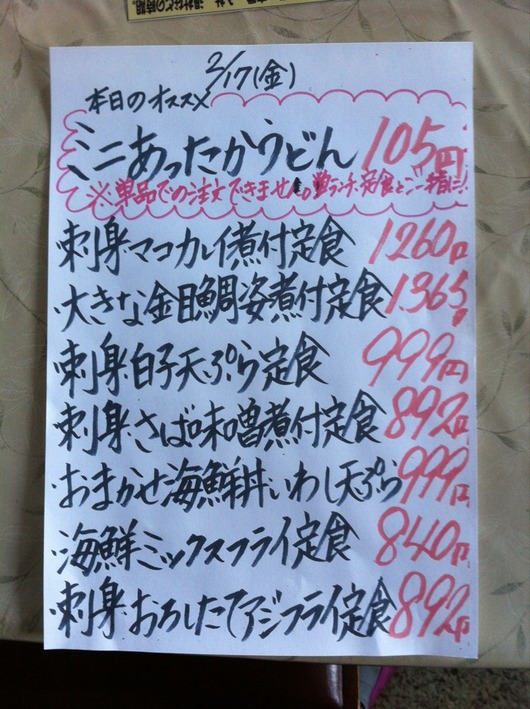 2/17(金)
本日のオススメ
ミニあったかうどん 105円
※単品での注文できません。ランチ定食とご一緒に!
刺身マコカレイ煮付定食 1260円
大きな金目鯛姿煮付定食 1365円
刺身白子天ぷら定食 999円
刺身さば味噌煮付定食 892円
おまかせ海鮮丼いわし天ぷら 999円
海鮮ミックスフライ定食 840円
刺身おろしたてアジフライ定食 892円